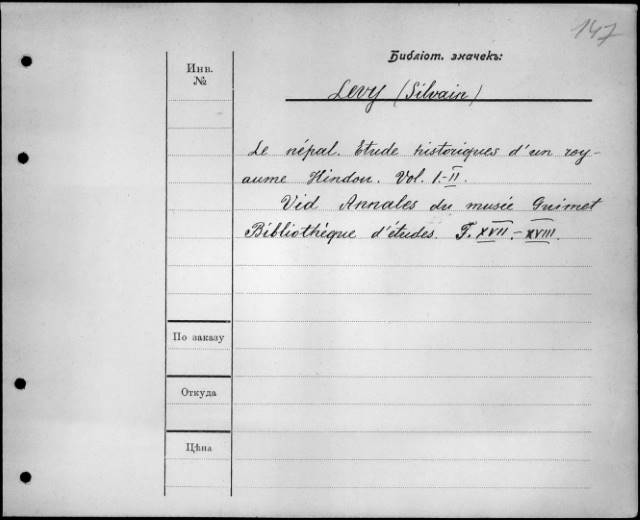 147
Библіот. значекъ:
Инв.
№
Levy (Silvain)
Le népal. Etude historiques d'un roy-
aume Hindou. Vol. I-II.
Vid Annales du musée Guimet
Bibliothéque d'études. T. XVII-XVIII.
По заказу
Откуда
Цѣна